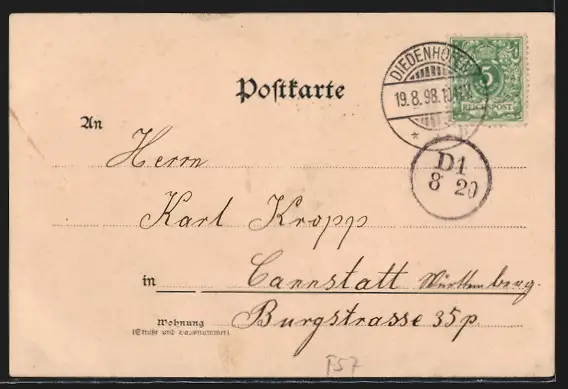 DIEDENHOFEN
19.8.98.
5
REICHSPOST
Poſtkarte
An
D1
8 20
Herrn
Karl Kropp
in Cannstatt Württemberg.
Wohnung Burgstrasse 35 p.
(Straße und Hausnummer)
T57